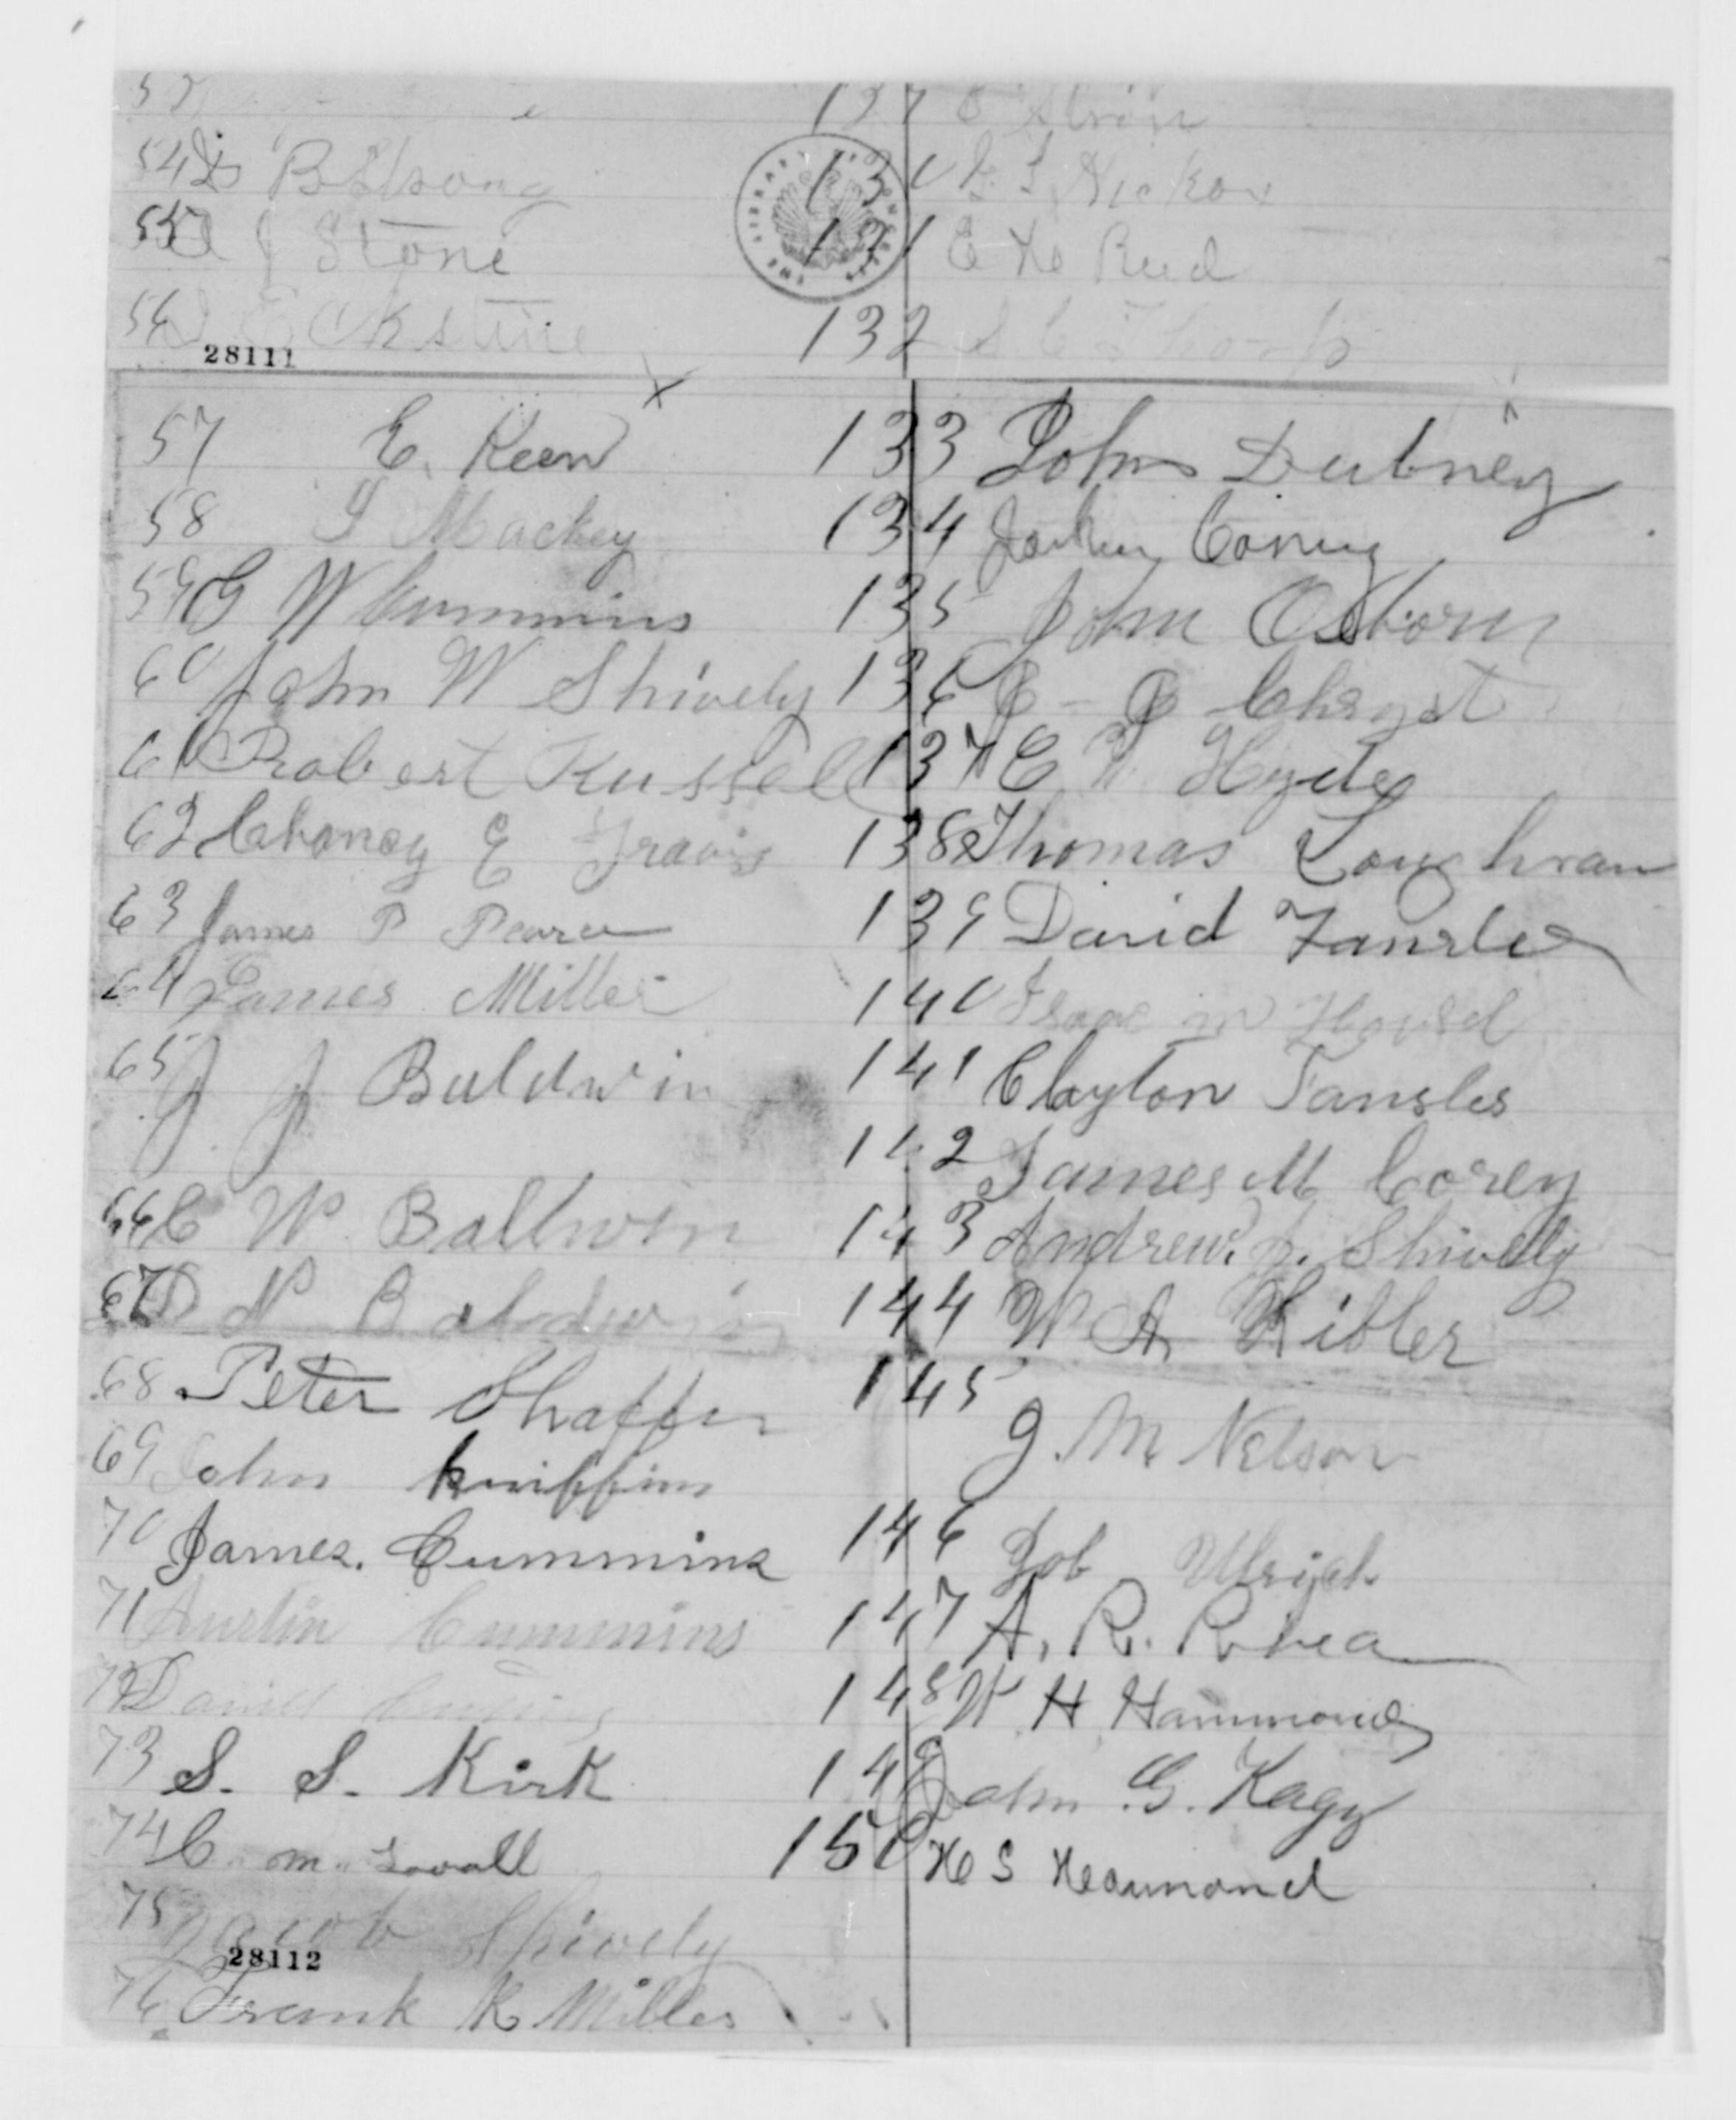 54 B Strong
55 J Stone
56 Eckstine
28111
57 E. Keen
58 J Mackey
59 G W Cummins
60 John W Shively
61 Robert Russell
62 Chancy E Travis
63 James P Pearce
64 James Miller
65 J J Baldwin
66 C W Balldwin
67 D N Baldwin
68 Peter Shaffer
69 John Kniffin
70 James. Cummins
71 Austin Cummins
72 Daniel
73 S. S. Kirk
74 C. m. Lovall
75 Jacob Shively
28112
76 Frank K Miller
129 E
130 Nickox
131 E H Reed
132 S C Thorp
133 John Dubney
134 Corey
135 John Osborn
136 J - J Chryst
137 C W Hyde
138 Thomas Loughran
139 David Fansler
140 Isaac m Housel
141 Clayton Fansler
142 James M Corey
143 Andrew. J. Shively
144 W A Kibler
145
J. M. Nelson
146 Job Ulrich
147 A. R. Rhea
148 W H Hammond
149 John. G. Kagy
150 H S Heammond